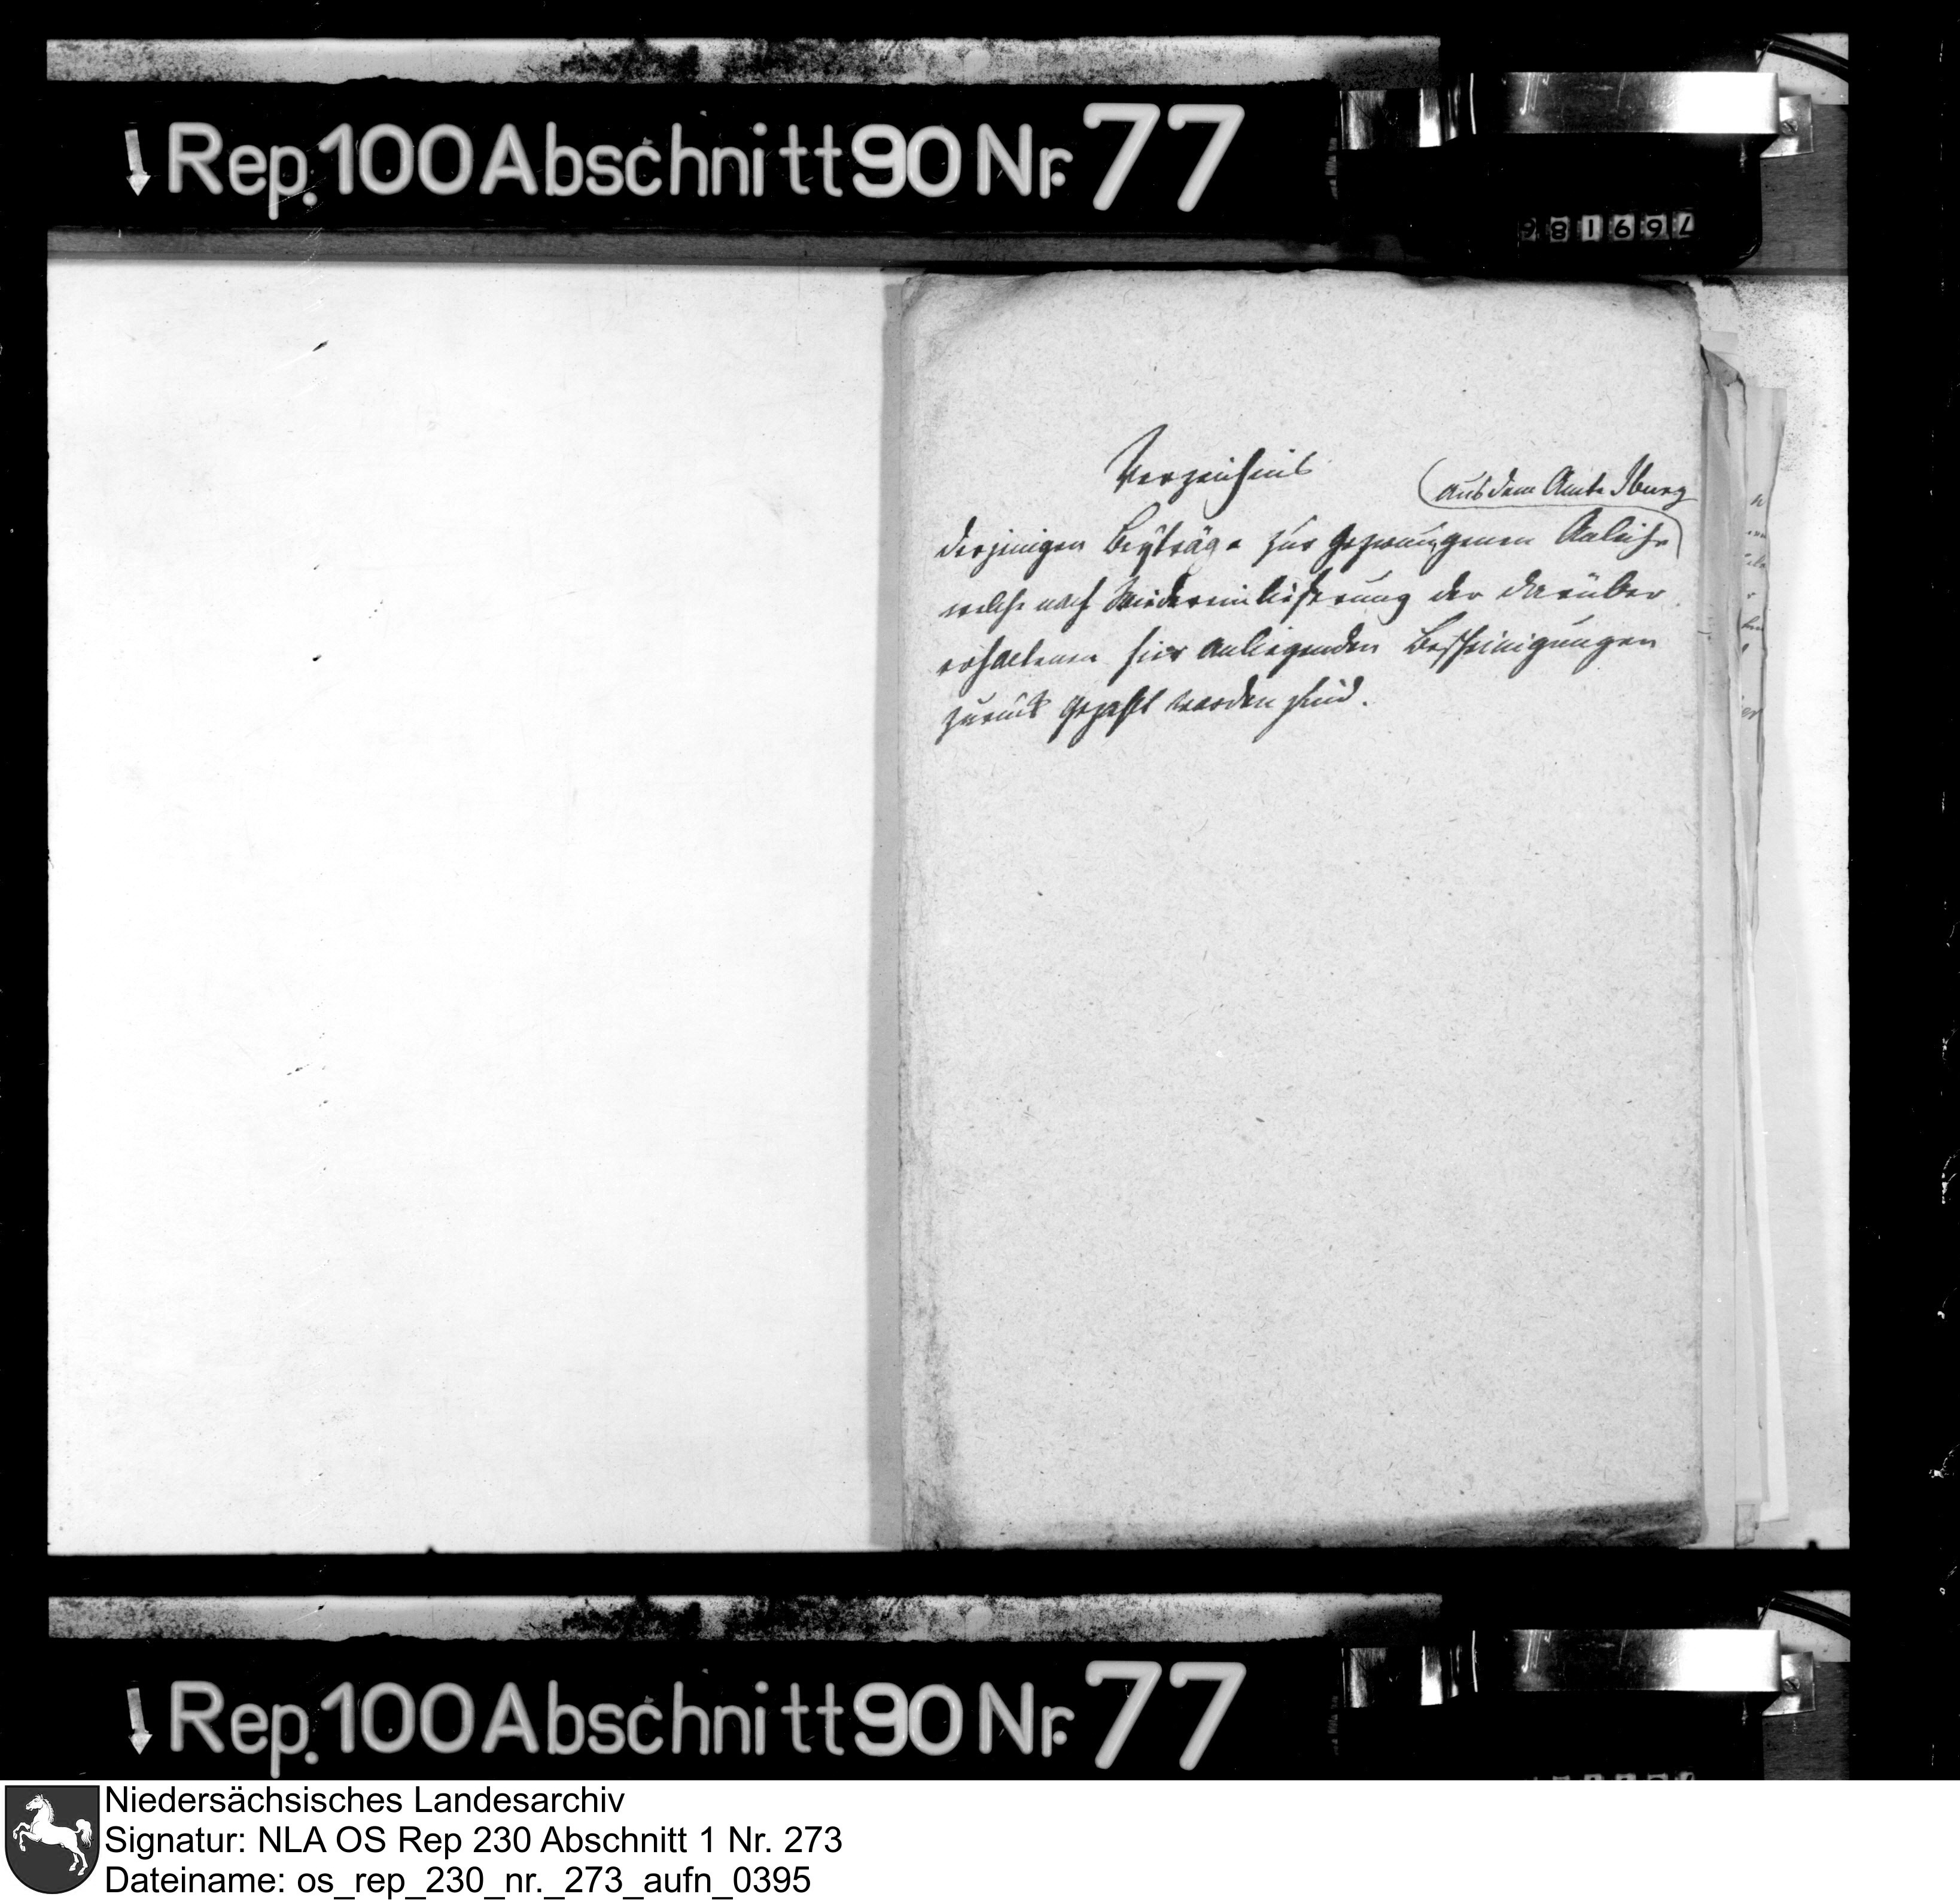 Rep. 100 Abschnitt 90 Nr. 77
981697
Verzeichnis
aus dem Amte Iburg
derjenigen Beyträge zur gezwungenen Anleihe
welche nach Wiedereinlieferung der darüber
erhaltenen hier anliegenden Bescheinigungen
zurück gezahlt worden sind.
Rep. 100 Abschnitt 90 Nr. 77
Niedersächsisches Landesarchiv
Signatur: NLA OS Rep 230 Abschnitt 1 Nr. 273
Dateiname: os_rep_230_nr._273_aufn_0395